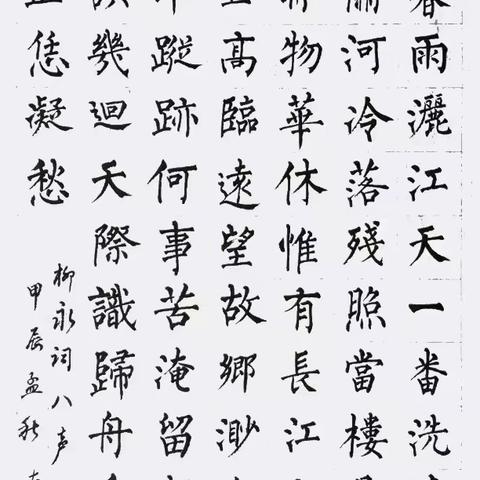 雨灑江天一番洗
河冷落殘照當樓
物華休惟有長江
高臨遠望故鄉渺
蹤跡何事苦淹留
幾迴天際識歸舟
恁凝愁
柳永词八声
甲辰孟秋